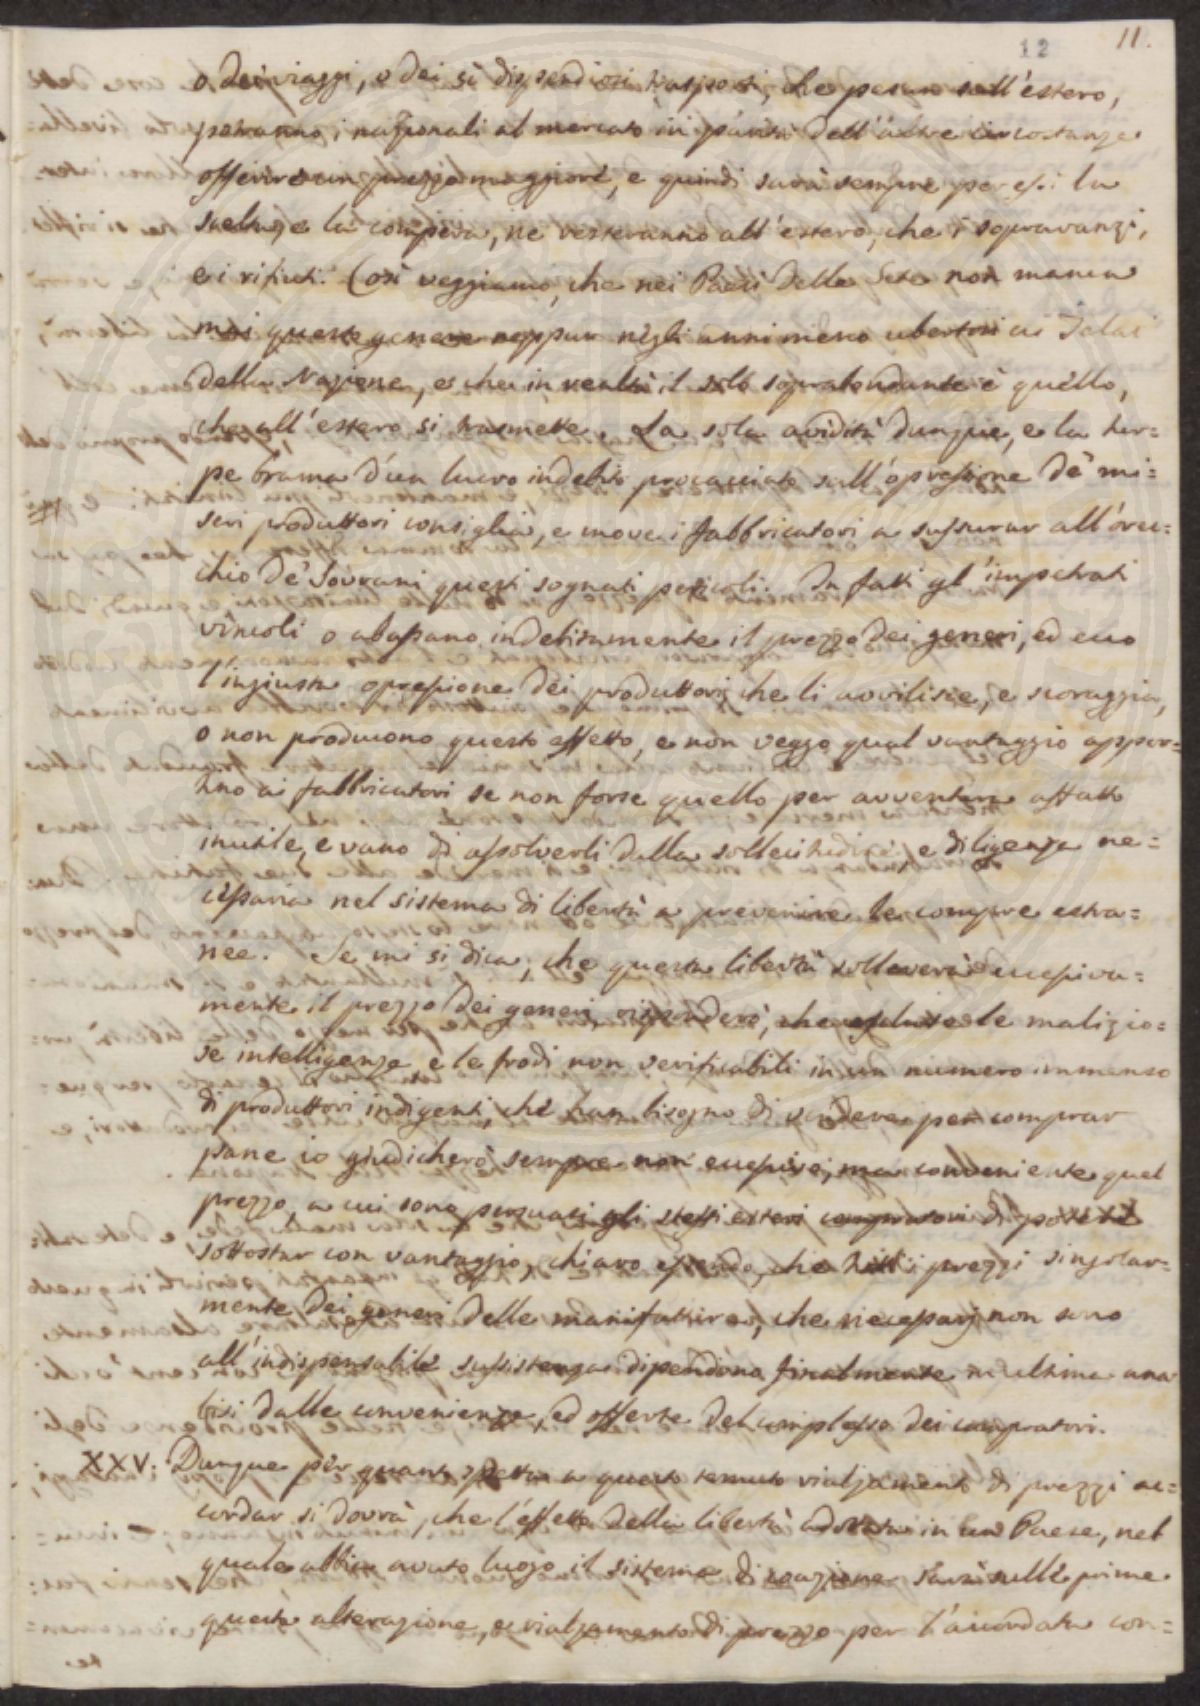 12 11.
o dei viaggi, o dei sì dispendiosi trasporti, che pesan sull'estero,
potranno i nazionali al mercato in parità dell'altre circostanze
offerire un prezzo maggiore, e quindi sarà sempre per essi la
scelta, e la compera, nè resteranno all'estero, che i sopravanzi,
e i rifiuti. Così veggiamo, che nei Paesi della Seta non manca
mai questo genere neppur negli anni meno ubertosi ai Telai
della Nazione, e che in realtà il solo soprabondante è quello,
che all'estero si trasmette. La sola avidità dunque, e la tur=
pe brama d'un lucro indebito procacciato sull'opressione de' mi=
seri produttori consiglia, e move i fabbricatori a sussurar all'orec=
chio de' Sovrani questi sognati pericoli. In fatti gl'impetrati
vincoli o abassano indebitamente il prezzo dei generi, ed ecco
l'ingiusta opressione dei produttori, che li avvilisce, e scoraggia,
o non producono questo effetto, e non veggo qual vantaggio appor=
tino ai fabbricatori se non forse quello per avventura affatto
inutile, e vano di assolverli dalla sollecitudine, e diligenza ne=
cessaria nel sistema di libertà a prevenire le compre estra=
nee. Se mi si dica, che questa libertà solleverà eccessiva=
mente il prezzo dei generi, risponderò, che escluse le malizio=
se intelligenze, e le frodi non verificabili in un numero immenso
di produttori indigenti, che han bisogno di vendere per comprar
pane io giudicherò sempre non eccessivo, ma conveniente quel
prezzo, a cui sono persuasi gli stessi esteri compratori di poter
sottostar con vantaggio, chiaro essendo, che tutti i prezzi singolar=
mente dei generi delle manifatture, che necessarj non sono
all'indispensabile sussistenza dipendono finalmente in ultima ana
lisi dalle convenienze, ed offerte del complesso dei compratori.
XXV. Dunque per quanto spetta a questo temuto rialzamento di prezzi ac=
cordar si dovrà, che l'effetto della libertà adottata in un Paese, nel
quale abbia avuto luogo il sistema di coazione sarà sulle prime
questa alterazione, e rialzamento di prezzo per l'accordata con=